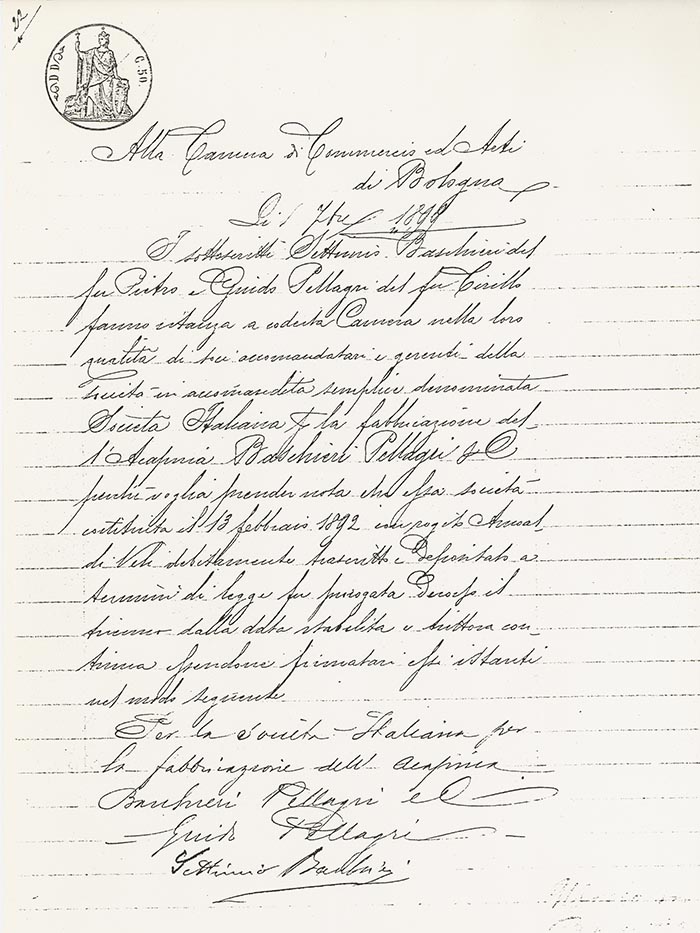 22
DD
C. 50.
Alla Camera di Commercio ed Arti
di Bologna
Di 1 7bre 1898
I sottoscritti Settimio Baschieri del
fu Pietro e Guido Pellagri del fu Cirillo
fanno istanza a codesta Camera nella loro
qualità di soci accomandatari e gerenti della
società in accomandita semplice denominata
Società Italiana per la fabbricazione del-
l'Acapnia Baschieri Pellagri & C
perché voglia prender nota che essa società
costituita il 13 febbraio 1892 con rogito
di debitamente trascritto e depositato a
termini di legge fu prorogata dopo il
triennio dalla data stabilita e tuttora con-
tinua essendone firmatari essi istanti
nel modo seguente
Per la Società Italiana per
la fabbricazione dell' acapnia
Baschieri Pellagri e C
Guido Pellagri
Settimio Baschieri